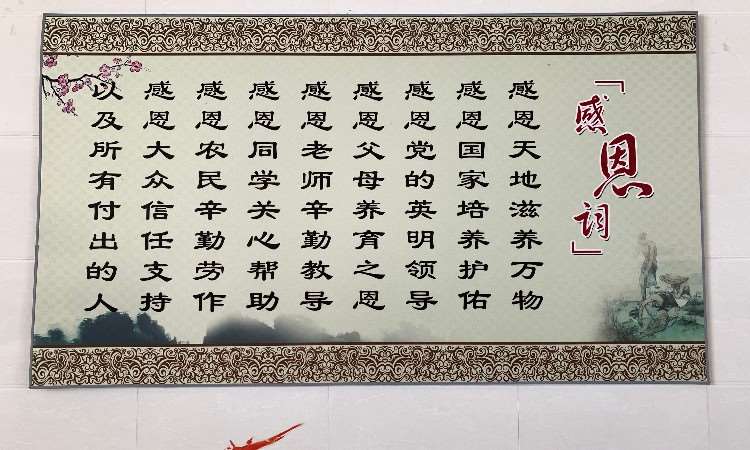 「感恩词」
感恩天地滋养万物
感恩国家培养护佑
感恩党的英明领导
感恩父母养育之恩
感恩老师辛勤教导
感恩同学关心帮助
感恩农民辛勤劳作
感恩大众信任支持
以及所有付出的人